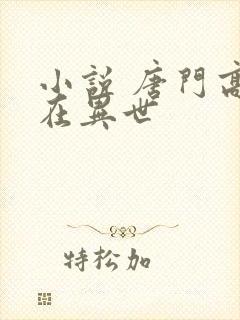 小說 唐門高
在異世
特松加